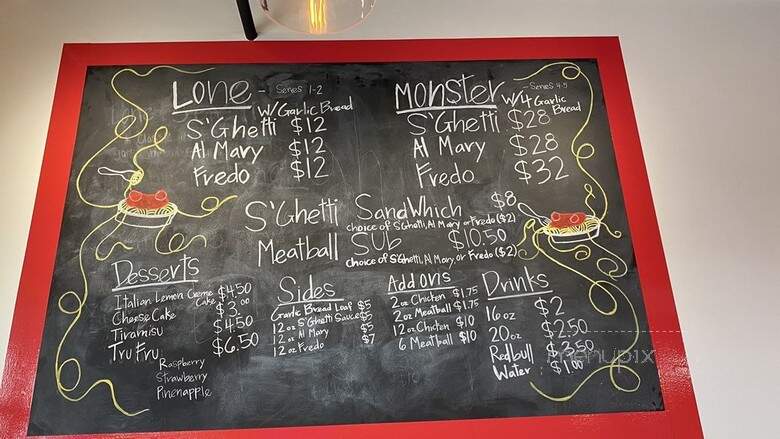 Lone - Serves 1-2
W/Garlic Bread
S'Ghetti $12
Al Mary $12
Fredo $12
Monster - Serves 4-5
W/4 Garlic Bread
S'Ghetti $28
Al Mary $28
Fredo $32
S'Ghetti SandWhich $8
choice of S'Ghetti, Al Mary or Fredo ($2)
Meatball Sub $10.50
choice of S'Ghetti, Al Mary, or Fredo ($2)
Desserts
Italian Lemon Creme Cake $4.50
Cheese Cake $3.00
Tiramisu $4.50
Tru Fru $6.50
Raspberry
Strawberry
Pinenapple
Sides
Garlic Bread Loaf $5
12 oz S'Ghetti Sauce $5
12 oz Al Mary $5
12 oz Fredo $7
Add ons
2 oz Chicken $1.75
2 oz Meatball $1.75
12 oz Chicken $10
6 Meatball $10
Drinks
16 oz $2
20 oz $2.50
Redbull $3.50
Water $1.00
menupix